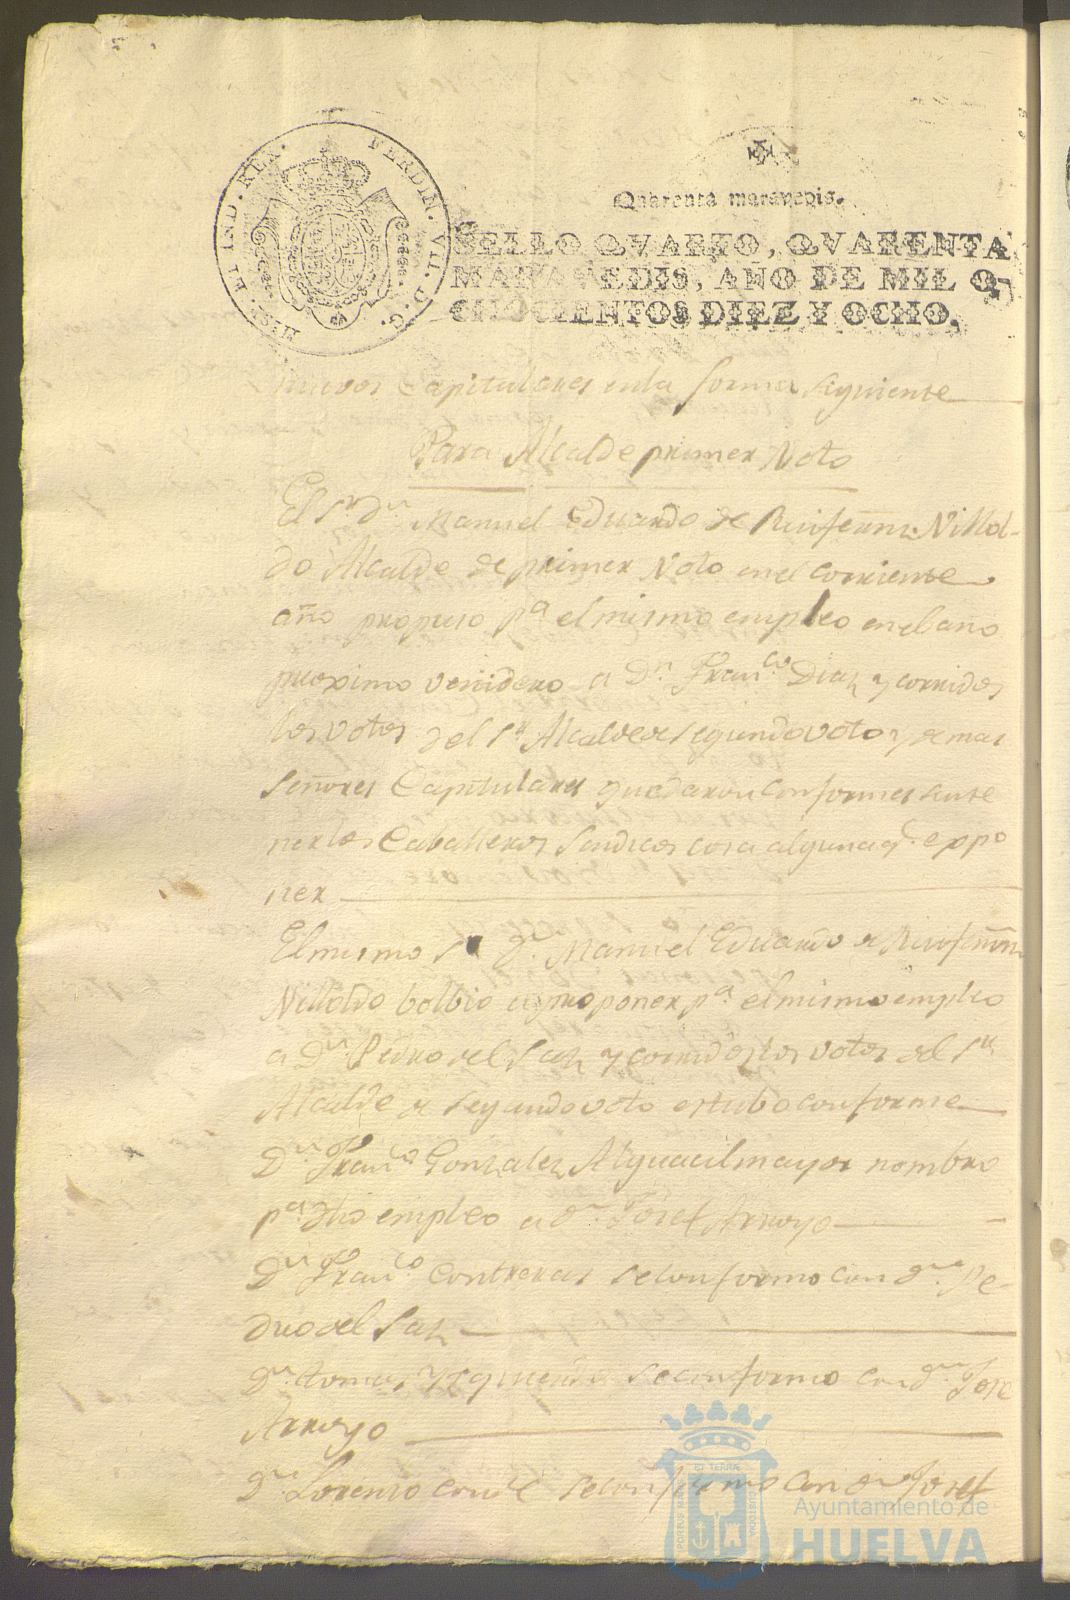 HISP. ET IND. REX. FERDIN. VII. D. G.
Quarenta maravedis.
SELLO QVARTO, QVARENTA
MARAVEDIS, AÑO DE MIL O
CHOCIENTOS DIEZ Y OCHO.
nuevos Capitulares en la forma siguiente
Para Alcalde primer Voto
El Sr. Dn. Manuel Eduardo de
do Alcalde de primer Voto en el corriente
año propuso pa. el mismo empleo en el año
proximo venidero a Dn. Franco. Diaz y corridos
los votos del Sr. Alcalde de segundo voto y demas
Señores Capitulares quedaron conformes sin te
ner los Caballeros Sindicos cosa alguna q. expo
ner
El mismo Sr. Dn. Manuel Eduardo de
Villoldo bolbio a proponer pa. el mismo empleo
a Dn. Pedro del Saz y corridos los votos del Sr.
Alcalde de segundo voto estubo conforme
Dn. Franco. Gonzalez Alguacil mayor nombro
pa. dho empleo a Dn. Josef Arroyo
Dn. Franco. Contreras se conformo con dn. Pe-
dro del Saz
Dn. tomas se conformo con dn. Jose
Arroyo
Dn. Lorenzo conde se conformo con dn. Josef
PORTUS MARIS ET TERRÆ CUSTODIA
Ayuntamiento de
HUELVA